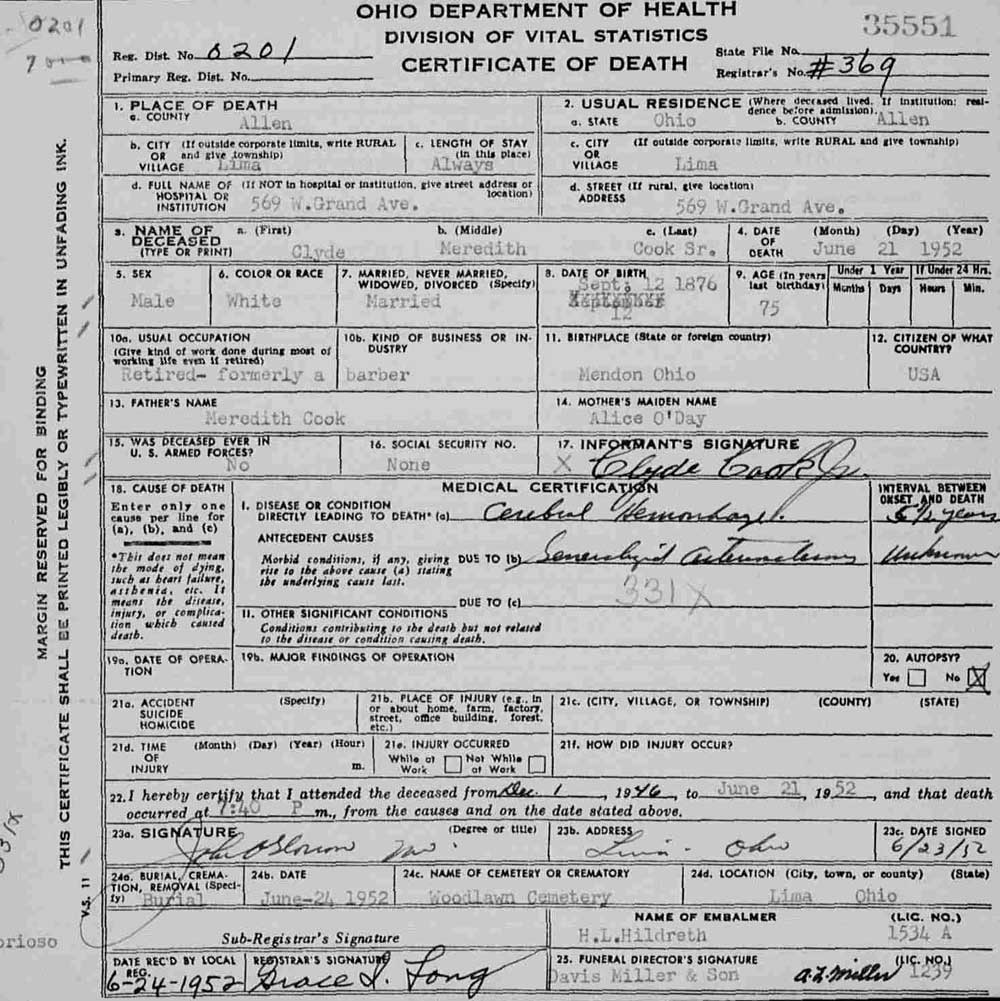 OHIO DEPARTMENT OF HEALTH
DIVISION OF VITAL STATISTICS
CERTIFICATE OF DEATH
0201
35551
Reg. Dist. No. 0201
State File No.
Primary Reg. Dist. No.
Registrar's No. #369
MARGIN RESERVED FOR BINDING
THIS CERTIFICATE SHALL BE PRINTED LEGIBLY OR TYPEWRITTEN IN UNFADING INK.
V.S. 11
1. PLACE OF DEATH
a. COUNTY
Allen
2. USUAL RESIDENCE (Where deceased lived. If institution: residence before admission).
a. STATE Ohio b. COUNTY Allen
b. CITY (If outside corporate limits, write RURAL
OR and give township)
VILLAGE Lima
c. LENGTH OF STAY
(in this place)
Always
c. CITY (If outside corporate limits, write RURAL and give township)
OR
VILLAGE Lima
d. FULL NAME OF (If NOT in hospital or institution, give street address or
HOSPITAL OR location)
INSTITUTION 569 W.Grand Ave.
d. STREET (If rural, give location)
ADDRESS
569 W.Grand Ave.
3. NAME OF DECEASED
(TYPE OR PRINT)
a. (First) b. (Middle) c. (Last)
Clyde Meredith Cook Sr.
4. DATE OF DEATH (Month) (Day) (Year)
June 21 1952
5. SEX
Male
6. COLOR OR RACE
White
7. MARRIED, NEVER MARRIED,
WIDOWED, DIVORCED (Specify)
Married
8. DATE OF BIRTH
Sept. 12 1876
12
9. AGE (In years
last birthday)
75
Under 1 Year
Months Days
If Under 24 Hrs.
Hours Min.
10a. USUAL OCCUPATION
(Give kind of work done during most of
working life even if retired)
Retired- formerly a
10b. KIND OF BUSINESS OR INDUSTRY
barber
11. BIRTHPLACE (State or foreign country)
Mendon Ohio
12. CITIZEN OF WHAT
COUNTRY?
USA
13. FATHER'S NAME
Meredith Cook
14. MOTHER'S MAIDEN NAME
Alice O'Day
15. WAS DECEASED EVER IN
U. S. ARMED FORCES?
No
16. SOCIAL SECURITY NO.
None
17. INFORMANT'S SIGNATURE
X Clyde Cook Jr.
18. CAUSE OF DEATH
Enter only one
cause per line for
(a), (b), and (c)
*This does not mean
the mode of dying,
such as heart failure,
asthenia, etc. It
means the disease,
injury, or complica-
tion which caused
death.
MEDICAL CERTIFICATION
INTERVAL BETWEEN
ONSET AND DEATH
I. DISEASE OR CONDITION
DIRECTLY LEADING TO DEATH* (a) Cerebral Hemorrhage.
5 1/2 years
ANTECEDENT CAUSES
Morbid conditions, if any, giving
rise to the above cause (a) stating
the underlying cause last.
DUE TO (b) Generalized
Unknown
331X
DUE TO (c)
II. OTHER SIGNIFICANT CONDITIONS
Conditions contributing to the death but not related
to the disease or condition causing death.
19a. DATE OF OPERA-
TION
19b. MAJOR FINDINGS OF OPERATION
20. AUTOPSY?
Yes No X
21a. ACCIDENT (Specify)
SUICIDE
HOMICIDE
21b. PLACE OF INJURY (e.g., in
or about home, farm, factory,
street, office building, forest,
etc.)
21c. (CITY, VILLAGE, OR TOWNSHIP) (COUNTY) (STATE)
21d. TIME (Month) (Day) (Year) (Hour)
OF
INJURY m.
21e. INJURY OCCURRED
While at Work Not While at Work
21f. HOW DID INJURY OCCUR?
22. I hereby certify that I attended the deceased from Dec. 1, 1946, to June 21, 1952, and that death
occurred at 7:40 P m., from the causes and on the date stated above.
23a. SIGNATURE (Degree or title)
23b. ADDRESS
Lima Ohio
23c. DATE SIGNED
6/23/52
24a. BURIAL, CREMA-
TION, REMOVAL (Speci-
fy) Burial
24b. DATE
June-24 1952
24c. NAME OF CEMETERY OR CREMATORY
Woodlawn Cemetery
24d. LOCATION (City, town, or county) (State)
Lima Ohio
Sub-Registrar's Signature
NAME OF EMBALMER (LIC. NO.)
H.L.Hildreth 1534 A
DATE REC'D BY LOCAL
REG.
6-24-1952
REGISTRAR'S SIGNATURE
Grace I. Long
25. FUNERAL DIRECTOR'S SIGNATURE (LIC. NO.)
Davis Miller & Son A.L. Miller 1239